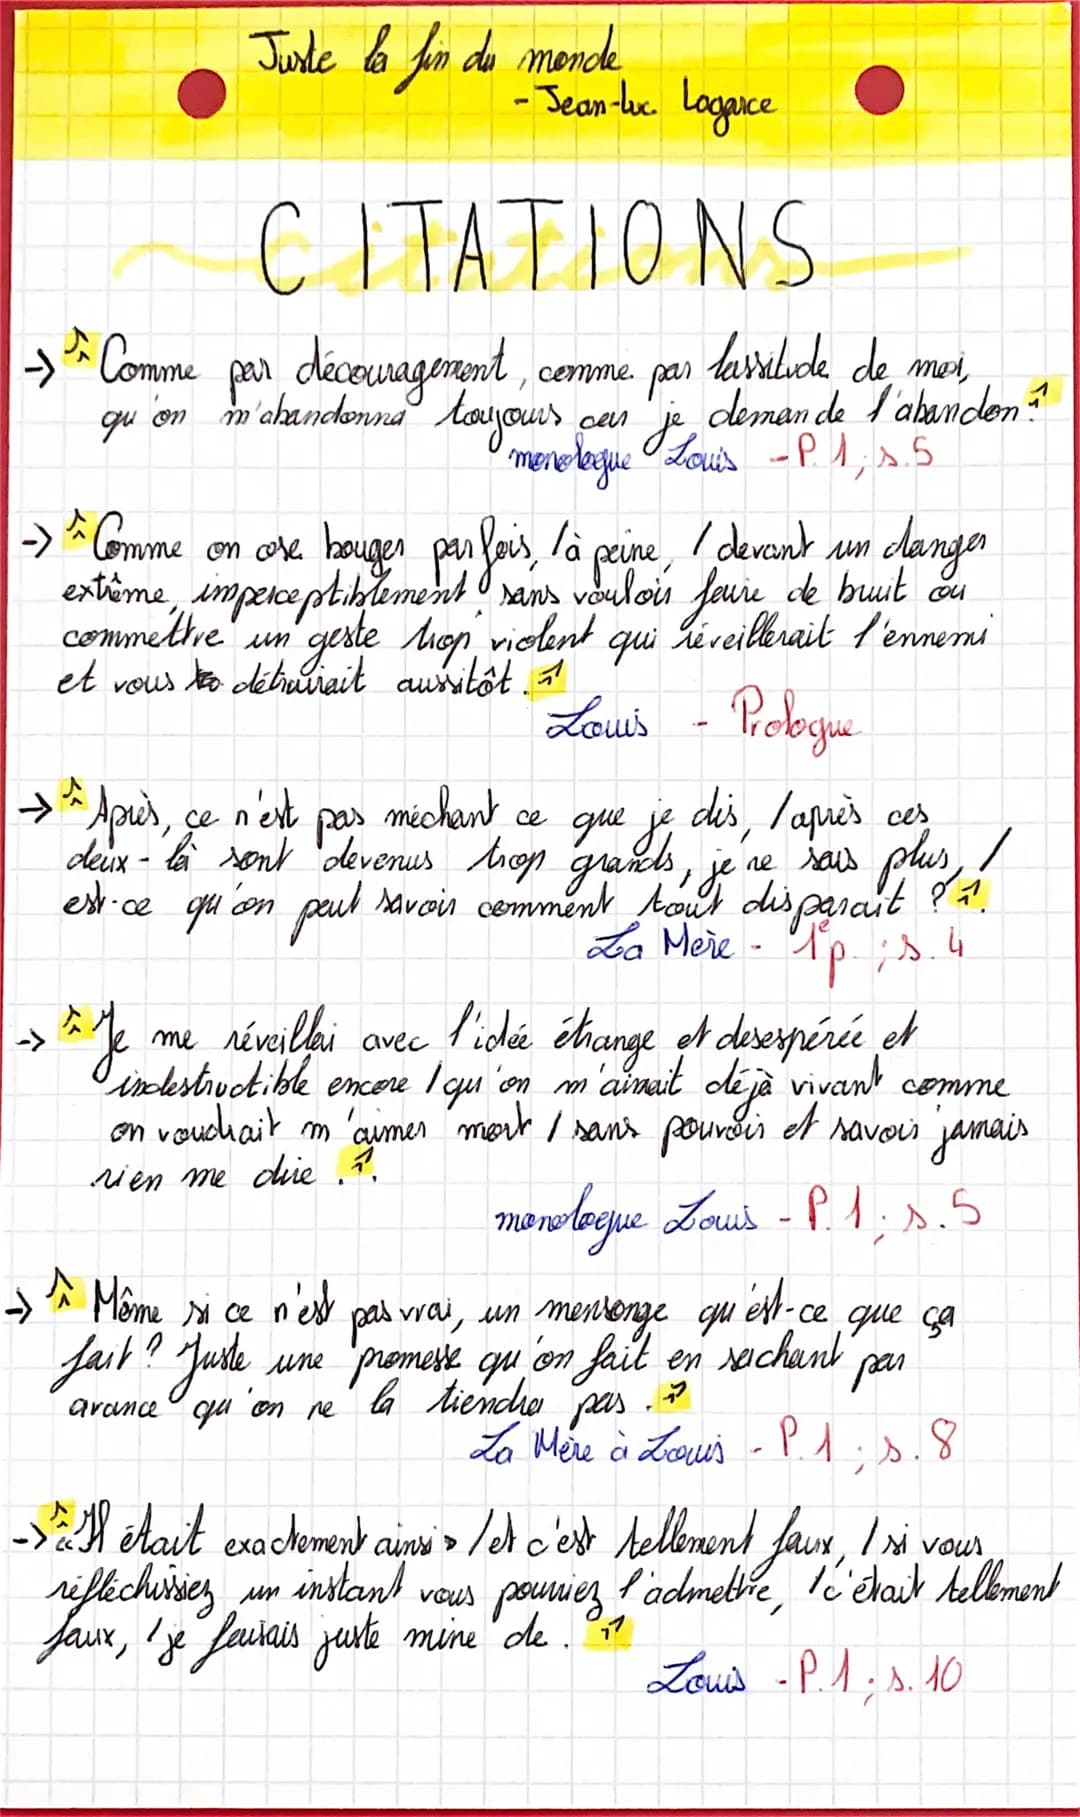 Juste la fin du monde
- Jean-luc Lagarce
CITATIONS
Citations
→ « Comme par découragement, comme par lassitude de moi,
qu'on m'abandonna toujours car je demande l'abandon »
monologue Louis - P. 1 ; s. 5
→ « Comme on ose bouger parfois, / à peine, / devant un danger
extrême, imperceptiblement, sans vouloir faire de bruit ou
commettre un geste trop violent qui réveillerait l'ennemi
et vous détruirait aussitôt. »
Louis - Prologue
→ « Après, ce n'est pas méchant ce que je dis, / après ces
deux-là sont devenus trop grands, je ne sais plus, /
est-ce qu'on peut savoir comment tout disparait ? ».
La Mère - 1e p. ; s. 4
→ « Je me réveillai avec l'idée étrange et desespérée et
indestructible encore / qu'on m'aimait déjà vivant comme
on voudrait m'aimer mort / sans pouvoir et savoir jamais
rien me dire . ».
monologue Louis - P. 1 ; s. 5
→ « Même si ce n'est pas vrai, un mensonge qu'est-ce que ça
fait ? Juste une promesse qu'on fait en sachant par
avance qu'on ne la tiendra pas . »
La Mère à Louis - P. 1 ; s. 8
→ « « Il était exactement ainsi » / et c'est tellement faux, / si vous
réfléchissiez un instant vous pourriez l'admettre, / c'était tellement
faux, / je faisais juste mine de . »
Louis - P. 1 ; s. 10